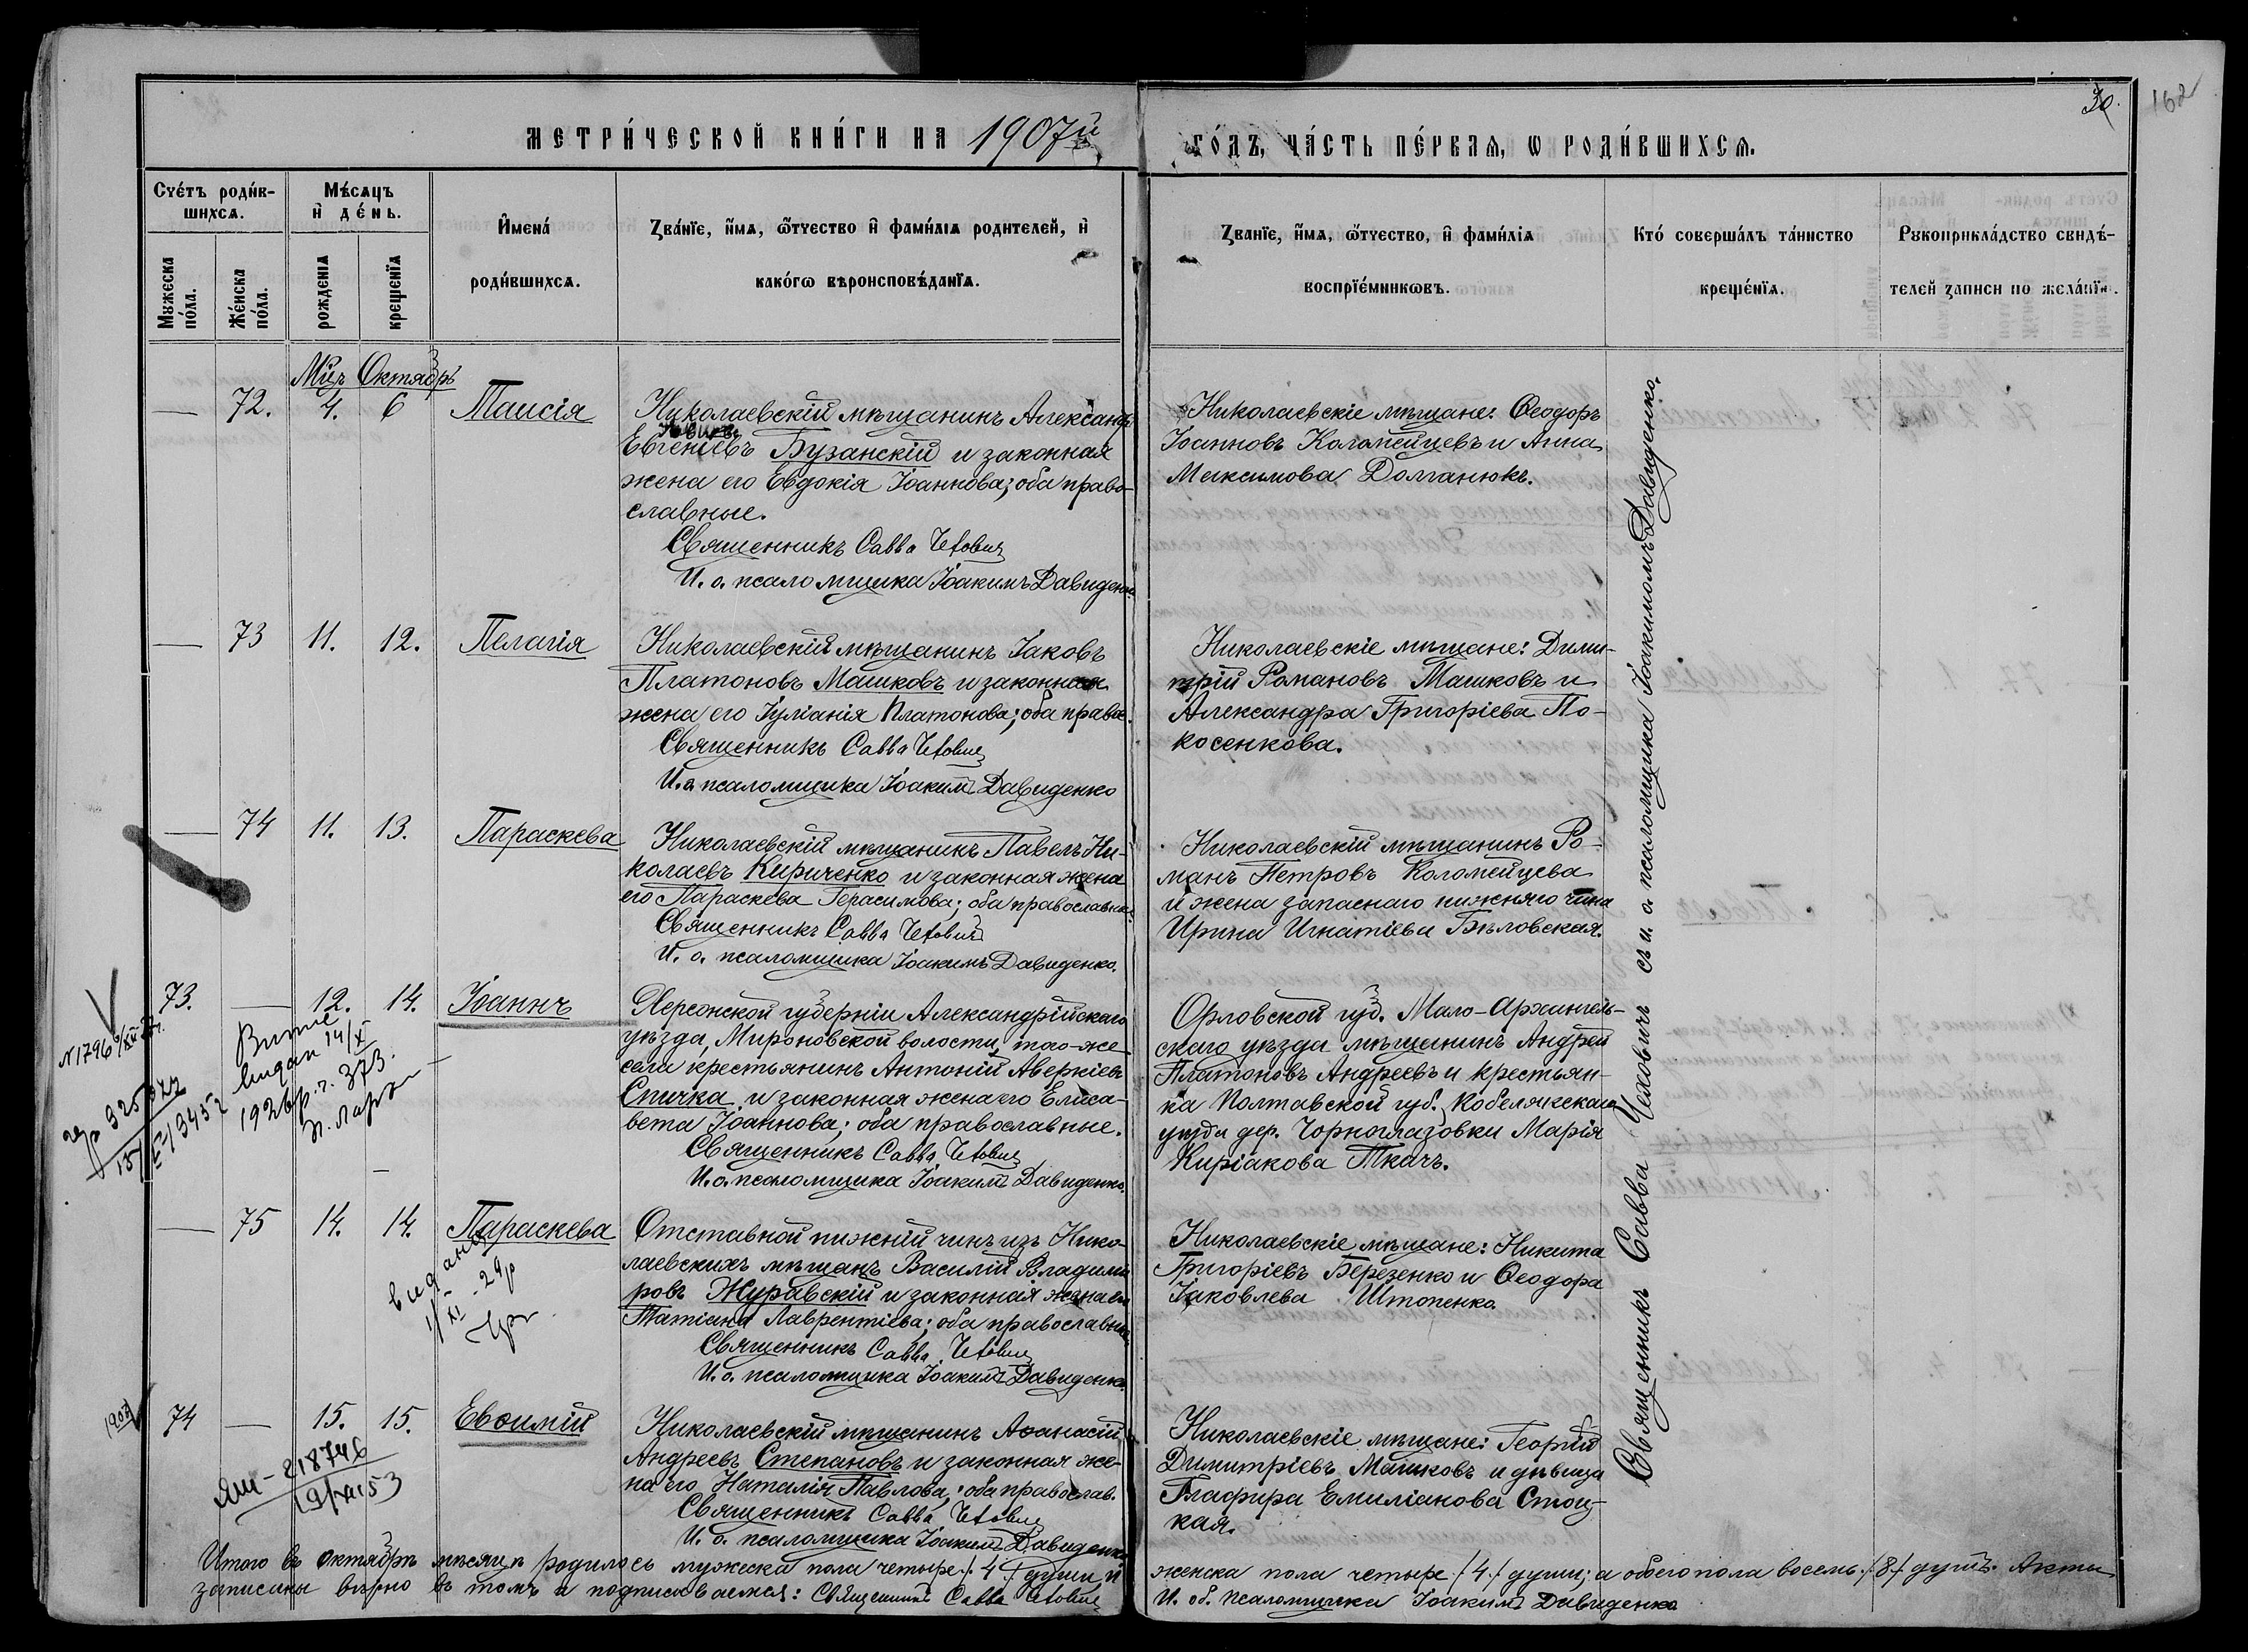 30.
162
МЕТРИ́ЧЕСКОЙ КНИ́ГИ НА 1907й
ГО́ДЪ, ЧА́СТЬ ПЕ́РВАѦ, Ѡ РОДИ́ВШИХСѦ.
Счетъ роди́вшихсѧ.
Мужеска по́ла.
Же́нска по́ла.
Мѣ́сѧцъ и де́нь.
рожденїѧ
крещенїѧ
Имена́ роди́вшихсѧ.
Зва́нїе, и́мѧ, ѻ́тчество и фами́лїѧ родителей, и
како́гѡ вѣроисповѣ́данїѧ.
Званїе, и́мѧ, ѻ́тчество, и фами́лїѧ
воспрїе́мникѡвъ.
Кто́ соверша́лъ та́инство
креще́нїѧ.
Рукоприкла́дство свидѣ́-
телей записи по жела́нїю.
Мцъ Октябрь
— 72. 4. 6 Таисія
Николаевскій мѣщанинъ Александръ
Евгеніевъ Бузанскій и законная
жена его Евдокія Іоаннова; оба право-
славные.
Священникъ Савва Чехович
И. о. псаломщика Іоакимъ Давиденко
Николаевскіе мѣщане: Ѳеодоръ
Іоанновъ Коломейцевъ и Анна
Максимова Долганюкъ.
— 73 11. 12. Пелагія
Николаевскій мѣщанинъ Іаковъ
Платоновъ Машковъ и законная
жена его Іуліанія Платонова; оба правос.
Священникъ Савва Чехович
И. о. псаломщика Іоакимъ Давиденко
Николаевскіе мѣщане: Дими-
трій Романовъ Машковъ и
Александра Григоріева По-
косенкова.
— 74 11. 13. Параскева
Николаевскій мѣщанинъ Павелъ Ни-
колаевъ Кириченко и законная жена
его Параскева Герасимова; оба православные
Священникъ Савва Чехович
И. о. псаломщика Іоакимъ Давиденко.
Николаевскій мѣщанинъ Ро-
манъ Петровъ Коломейцева
и жена запаснаго нижняго чина
Ирина Игнатіева Бѣловская.
73. — 12. 14. Іоаннъ
Херсонской губерніи Александрійскаго
уѣзда, Мироновской волости, того-же
села крестьянинъ Антоній Аверкіевъ
Спичка и законная жена его Елиса-
вета Іоаннова; оба православные.
Священникъ Савва Чехович
И. о. псаломщика Іоакимъ Давиденко.
Орловской губ. Мало-Архангель-
скаго уѣзда мѣщанинъ Андрей
Платоновъ Андреевъ и крестьян-
ка Полтавской губ. Кобелякскаго
уѣзда дер. Чорноглазовки Марія
Киріакова Ткачъ.
N 1796
925322
13452
видан 14/X
1926 р. ч. 373.
— 75 14. 14. Параскева
Отставной нижній чинъ изъ Нико-
лаевскихъ мѣщанъ Василій Владими
ровъ Журавскій и законная жена его
Татіана Лаврентіева; оба православные
Священникъ Савва Чехович
И. о. псаломщика Іоакимъ Давиденко.
Николаевскіе мѣщане: Никита
Григоріевъ Березенко и Ѳеодора
Іаковлева Штопенко.
видано
1/XI - 29р
1907
74 — 15. 15. Евѳимій
Николаевскій мѣщанинъ Аѳанасій
Андреевъ Степановъ и законная же-
на его Наталія Павлова; оба православ.
Священникъ Савва Чехович
И. о. псаломщика Іоакимъ Давиденко
Николаевскіе мѣщане: Георгій
Димитріевъ Машковъ и дѣвица
Глафира Емиліанова Стоц-
кая.
ЯШ - 218746
19/VII 53
Священникъ Савва Чеховичъ съ и. о. псаломщика Іоакимомъ Давиденко.
Итого въ октябрѣ мѣсяцѣ родилось мужеска пола четыре /4/ души, и женска пола четыре /4/ души; а обоего пола восемь /8/ душъ. Акты
записаны вѣрно въ томъ и подписываемся: Священникъ Савва Чехович И. об. псаломщика Іоакимъ Давиденко